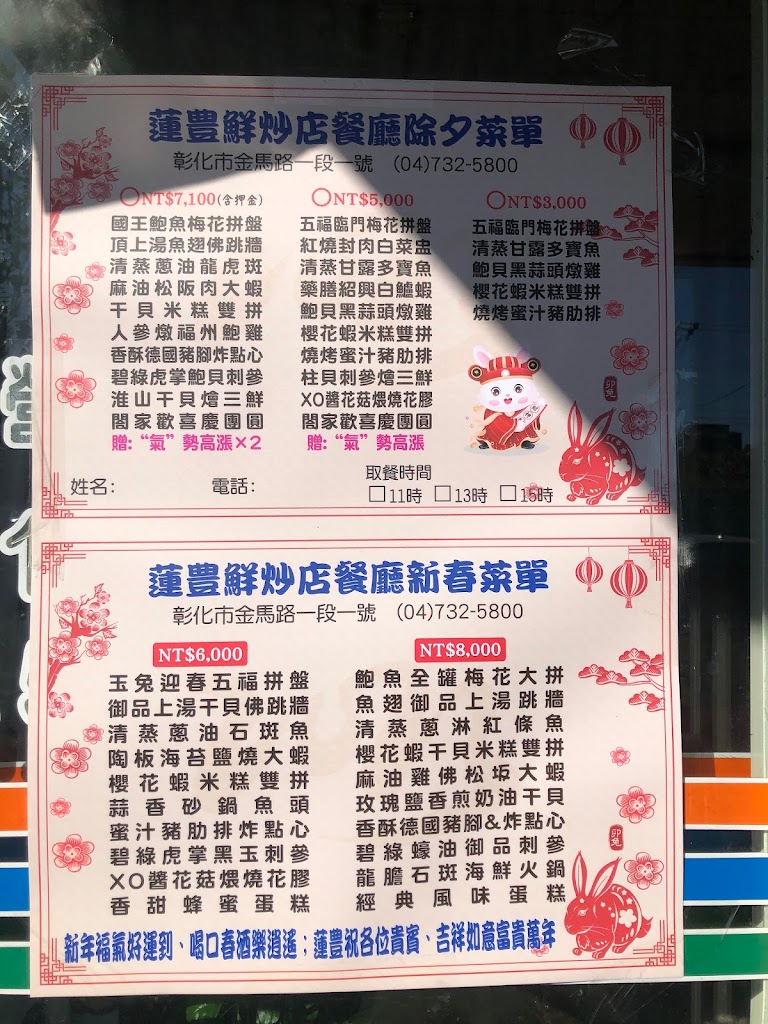 蓮豊鮮炒店餐廳除夕菜單
彰化市金馬路一段一號 (04)732-5800
○NT$7,100(含押金)
國王鮑魚梅花拼盤
頂上湯魚翅佛跳牆
清蒸蔥油龍虎斑
麻油松阪肉大蝦
干貝米糕雙拼
人參燉福州鮑雞
香酥德國豬腳炸點心
碧綠虎掌鮑貝刺參
淮山干貝燴三鮮
閤家歡喜慶團圓
贈:“氣”勢高漲×2
○NT$5,000
五福臨門梅花拼盤
紅燒封肉白菜盅
清蒸甘露多寶魚
藥膳紹興白鱸蝦
鮑貝黑蒜頭燉雞
櫻花蝦米糕雙拼
燒烤蜜汁豬肋排
柱貝刺參燴三鮮
XO醬花菇煨燒花膠
閤家歡喜慶團圓
贈:“氣”勢高漲
○NT$3,000
五福臨門梅花拼盤
清蒸甘露多寶魚
鮑貝黑蒜頭燉雞
櫻花蝦米糕雙拼
燒烤蜜汁豬肋排
卯兔
取餐時間
姓名: 電話: □11時 □13時 □15時
蓮豊鮮炒店餐廳新春菜單
彰化市金馬路一段一號 (04)732-5800
NT$6,000
玉兔迎春五福拼盤
御品上湯干貝佛跳牆
清蒸蔥油石斑魚
陶板海苔鹽燒大蝦
櫻花蝦米糕雙拼
蒜香砂鍋魚頭
蜜汁豬肋排炸點心
碧綠虎掌黑玉刺參
XO醬花菇煨燒花膠
香甜蜂蜜蛋糕
NT$8,000
鮑魚全罐梅花大拼
魚翅御品上湯跳牆
清蒸蔥淋紅條魚
櫻花蝦干貝米糕雙拼
麻油雞佛松坂大蝦
玫瑰鹽香煎奶油干貝
香酥德國豬腳&炸點心
碧綠蠔油御品刺參
龍膽石斑海鮮火鍋
經典風味蛋糕
卯兔
新年福氣好運到、喝口春酒樂逍遙；蓮豊祝各位貴賓、吉祥如意富貴萬年